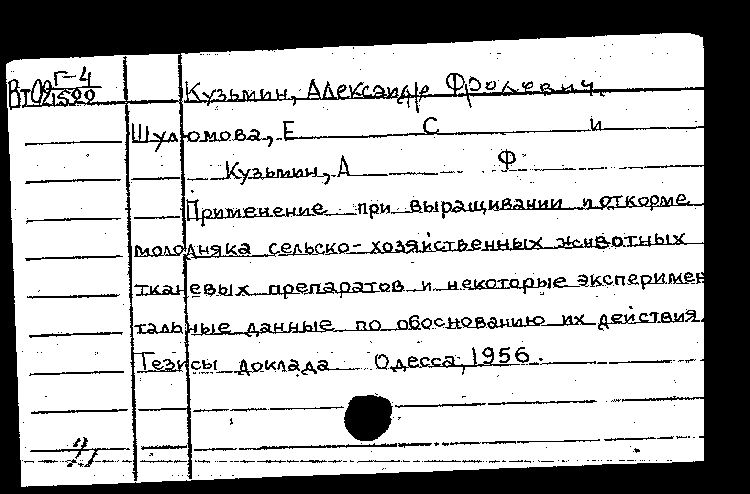 Г-4
Вт09 21500
Кузьмин, Александр Фролевич.
Шуломова, Е С и
Кузьмин, А Ф
Применение при выращивании и откорме
молодняка сельско-хозяйственных животных
тканевых препаратов и некоторые эксперимен
тальные данные по обоснованию их действия.
Тезисы доклада Одесса, 1956.